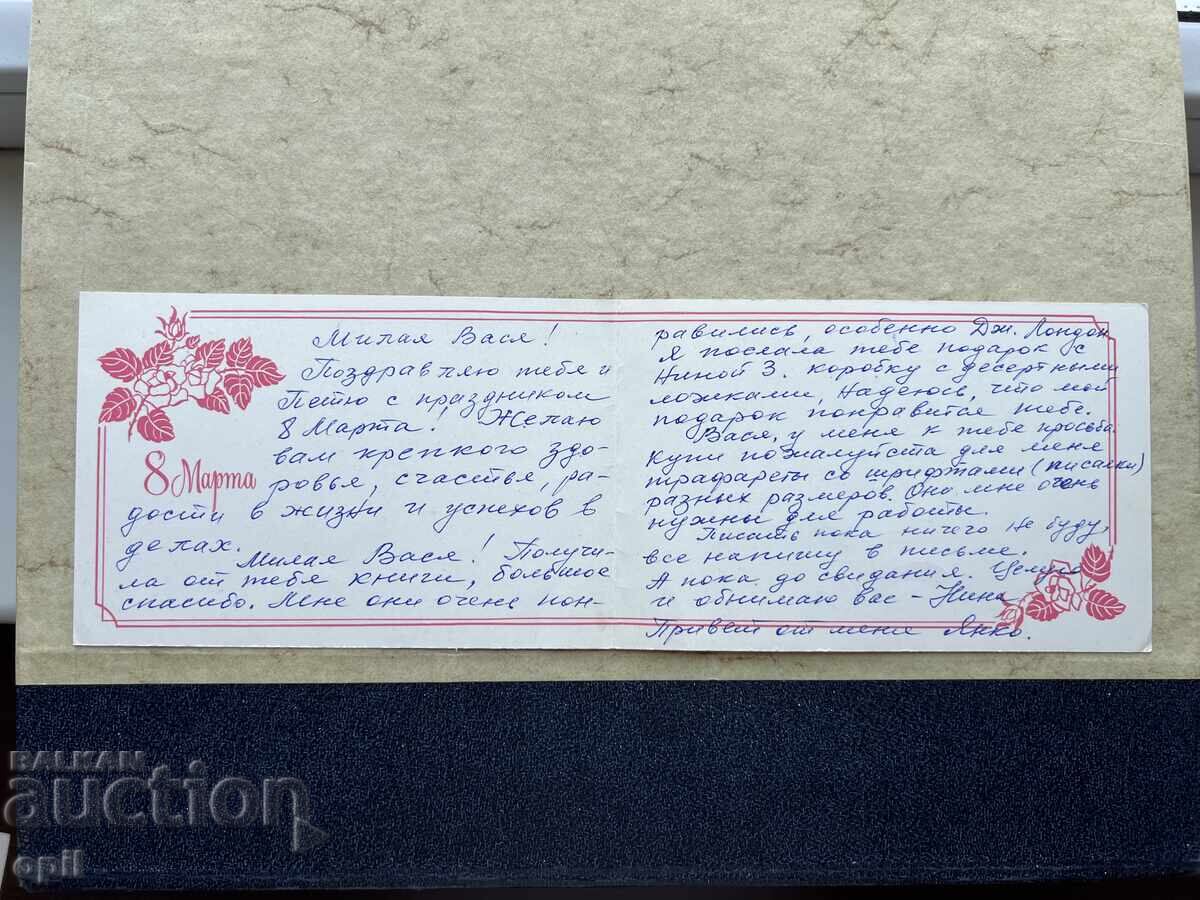 Милая Вася!
Поздравляю тебя и
Петю с праздником
8 Марта! Желаю
вам крепкого здо-
ровья, счастья, ра-
дости в жизни и успехов в
делах.
Милая Вася! Получи-
ла от тебя книги, большое
спасибо. Мне они очень пон-
8 Марта
равились, особенно Дж. Лондон
Я послала тебе подарок с
Ниной З. коробку с десертными
ложками, Надеюсь, что мой
подарок понравится тебе.
Вася, у меня к тебе просьба.
купи пожалуйста для меня
трафареты со шрифтами (писалки)
разных размеров. Они мне очень
нужны для работы.
Писать пока ничего не буду,
все напишу в письме.
А пока до свидания. Целую
и обнимаю вас - Нина
Привет от меня Янко.
BALKAN
auction
opil